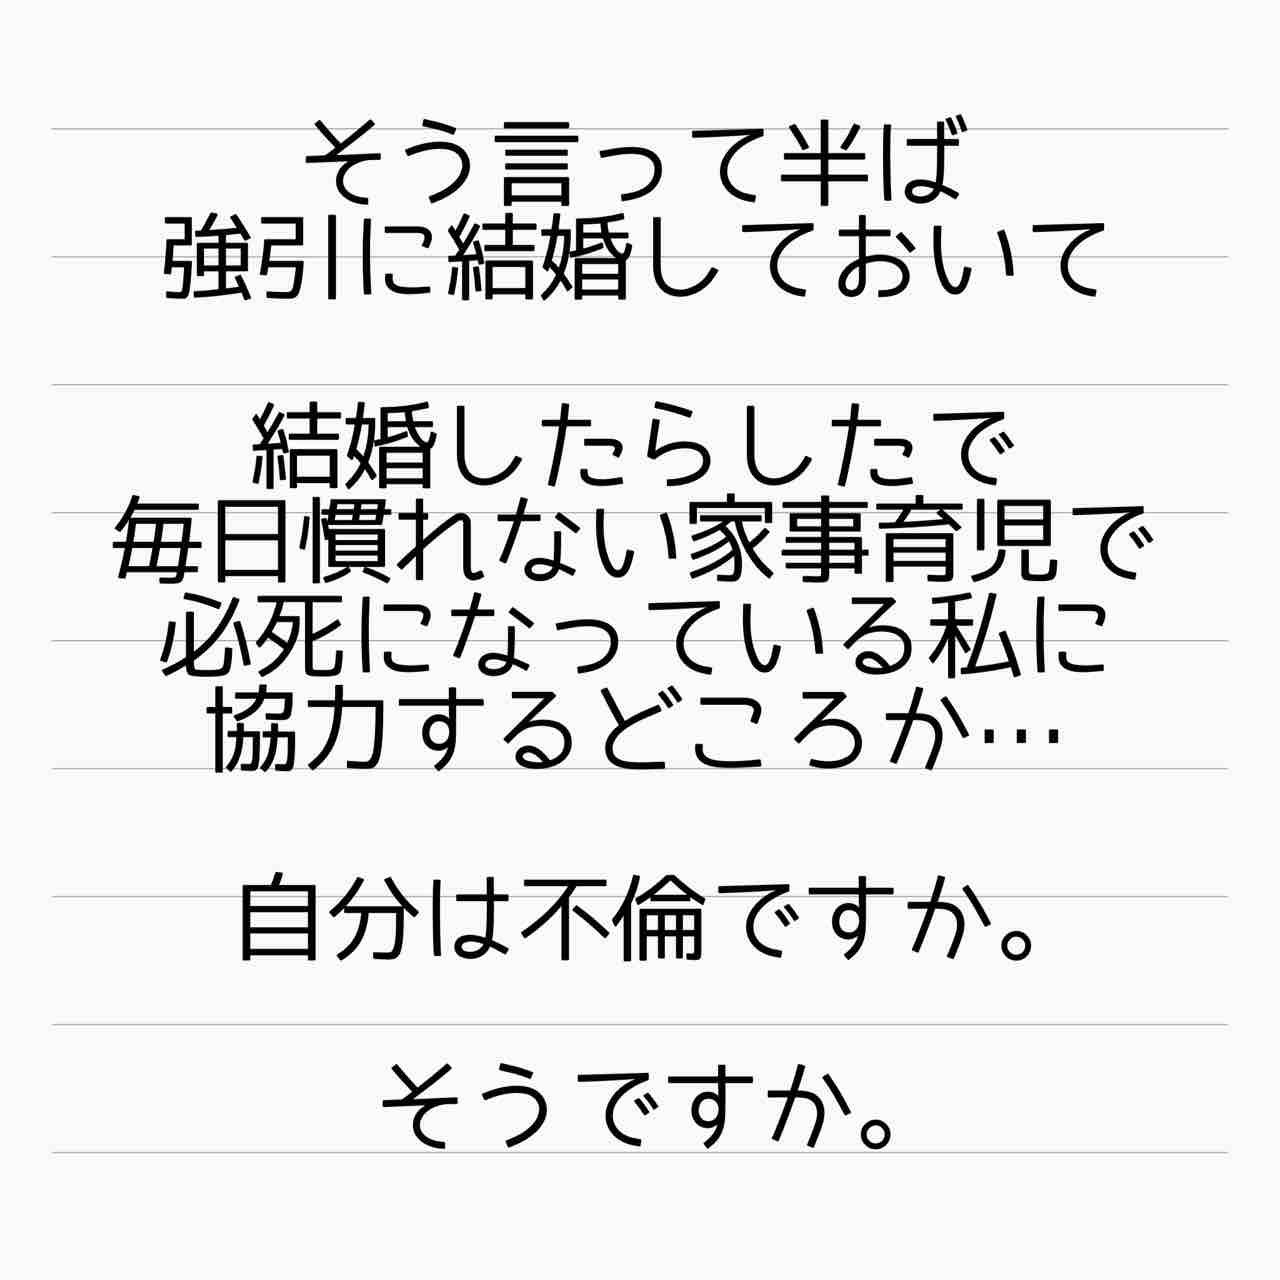 そう言って半ば
強引に結婚しておいて
結婚したらしたで
毎日慣れない家事育児で
必死になっている私に
協力するどころか…
自分は不倫ですか。
そうですか。